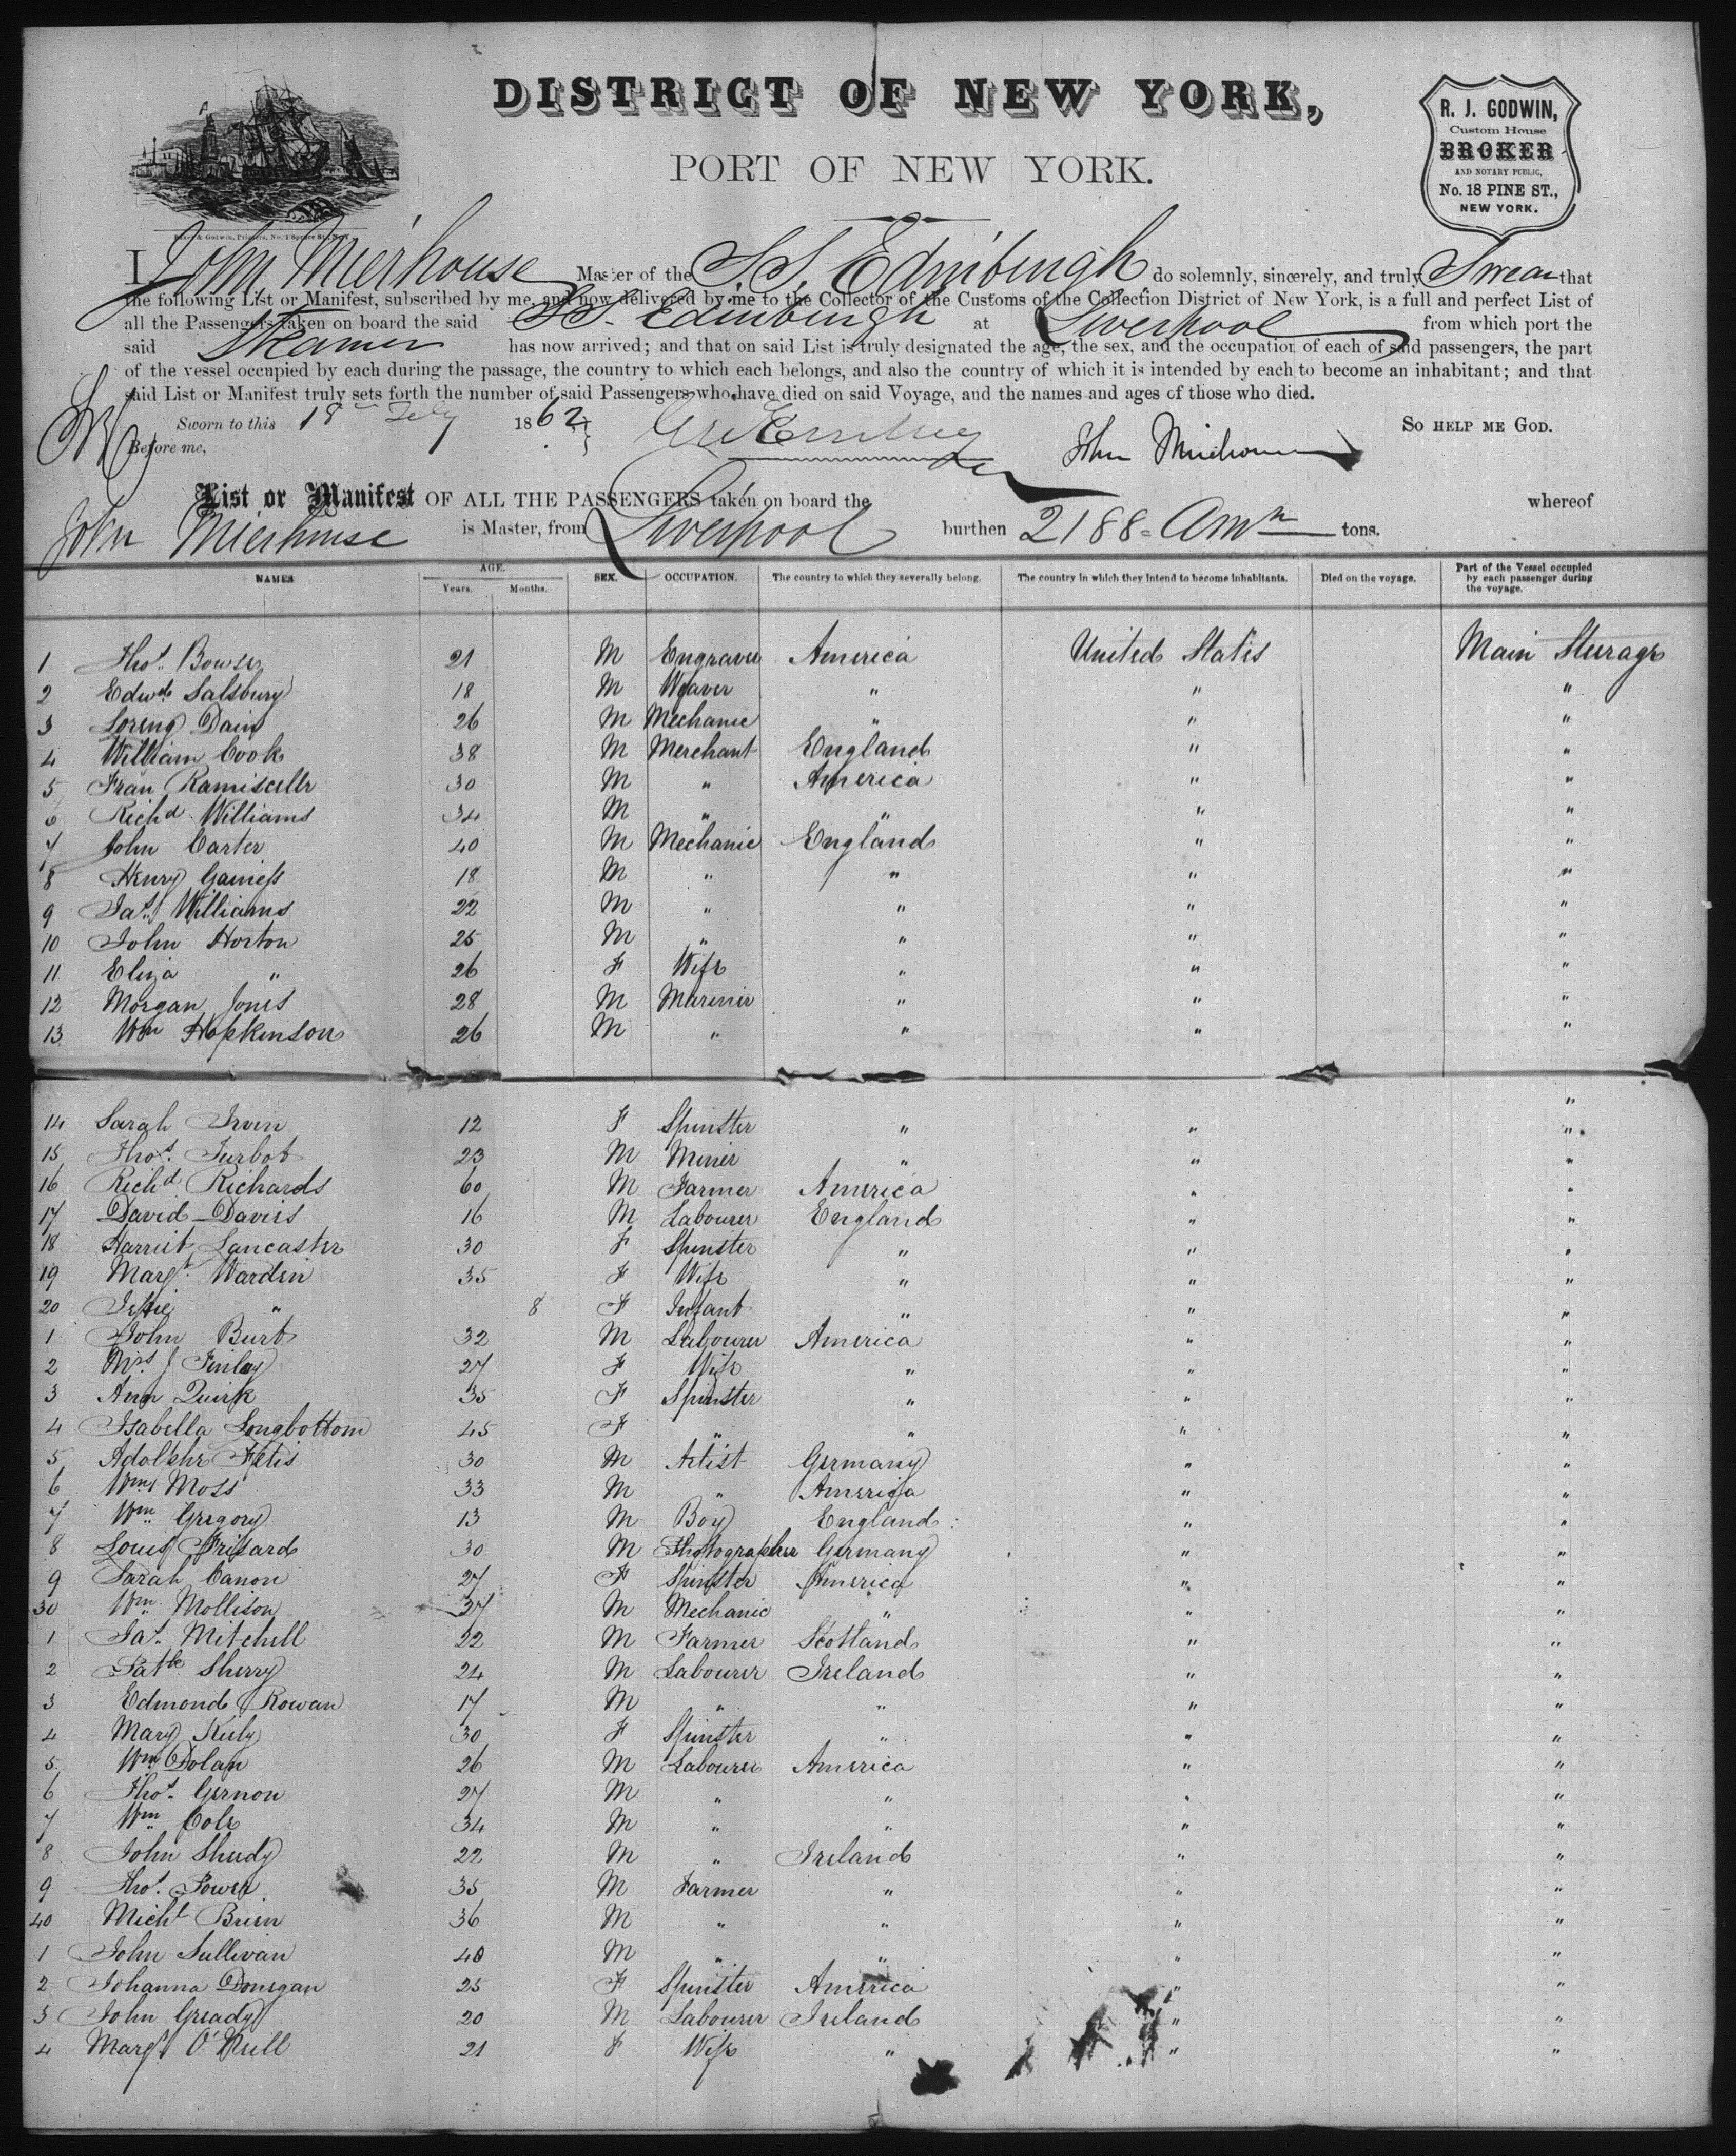 DISTRICT OF NEW YORK,
PORT OF NEW YORK.
R. J. GODWIN,
Custom House
BROKER
AND NOTARY PUBLIC,
No. 18 PINE ST.,
NEW YORK.
I John Mierhouse Master of the S.S. Edinburgh do solemnly, sincerely, and truly Swear that
the following List or Manifest, subscribed by me, and now delivered by me to the Collector of the Customs of the Collection District of New York, is a full and perfect List of
all the Passengers taken on board the said S.S. Edinburgh at Liverpool from which port the
said Steamer has now arrived; and that on said List is truly designated the age, the sex, and the occupation of each of said passengers, the part
of the vessel occupied by each during the passage, the country to which each belongs, and also the country of which it is intended by each to become an inhabitant; and that
said List or Manifest truly sets forth the number of said Passengers who have died on said Voyage, and the names and ages of those who died.
Sworn to this 18 1862 So help me God.
Before me,
List or Manifest OF ALL THE PASSENGERS taken on board the whereof
John Mierhouse is Master, from Liverpool burthen 2188 tons.
NAMES AGE. Years. Months. SEX. OCCUPATION. The country to which they severally belong. The country in which they intend to become inhabitants. Died on the voyage. Part of the Vessel occupied by each passenger during the voyage.
1 Thos. Bowser 21 M Engraver America United States Main Steerage
2 Edwd. Salsbury 18 M Weaver " " "
3 Loring Dain 26 M Mechanic " " "
4 William Cook 38 M Merchant England " "
5 Fran 30 M " America " "
6 Richd. Williams 34 M " " " "
7 John Carter 40 M Mechanic England " "
8 Henry Gainess 18 M " " " "
9 Jas. Williams 22 M " " " "
10 John Horton 25 M " " " "
11 Eliza " 26 F Wife " " "
12 Morgan Jones 28 M Mariner " " "
13 Wm Hopkinson 26 M " " " "
"
14 Sarah Irven 12 F Spinster " " "
15 Thos. Turbot 23 M Miner " " "
16 Richd Richards 60 M Farmer America " "
17 David Davies 16 M Labourer England " "
18 Harriet Lancaster 30 F Spinster " " "
19 Margt. Warden 35 F Wife " " "
20 Jessie " 8 F Infant " " "
1 John Burt 32 M Labourer America " "
2 Mrs. J Finlay 27 F Wife " " "
3 Ann Quirk 35 F Spinster " " "
4 Isabella Longbottom 45 F " " " "
5 Adolphe Fetis 30 M Artist Germany " "
6 Wm Moss 33 M " America " "
7 Wm Gregory 13 M Boy England " "
8 Louis Frisard 30 M Photographer Germany " "
9 Sarah Canon 27 F Spinster America " "
30 Wm. Mollison 37 M Mechanic " " "
1 Jas. Mitchell 22 M Farmer Scotland " "
2 Patk Sherry 24 M Labourer Ireland " "
3 Edmond Rowan 17 M " " " "
4 Mary Kiely 30 F Spinster " " "
5 Wm Dolan 26 M Labourer America " "
6 Thos. Gernon 27 M " " " "
7 Wm Cole 34 M " " " "
8 John Sheedy 22 M " Ireland " "
9 Thos. Power 35 M Farmer " " "
40 Michl Brien 36 M " " " "
1 John Sullivan 40 M " " " "
2 Johanna Donegan 25 F Spinster America " "
3 John Gready 20 M Labourer Ireland " "
4 Margt O'Neill 21 F Wife " " "